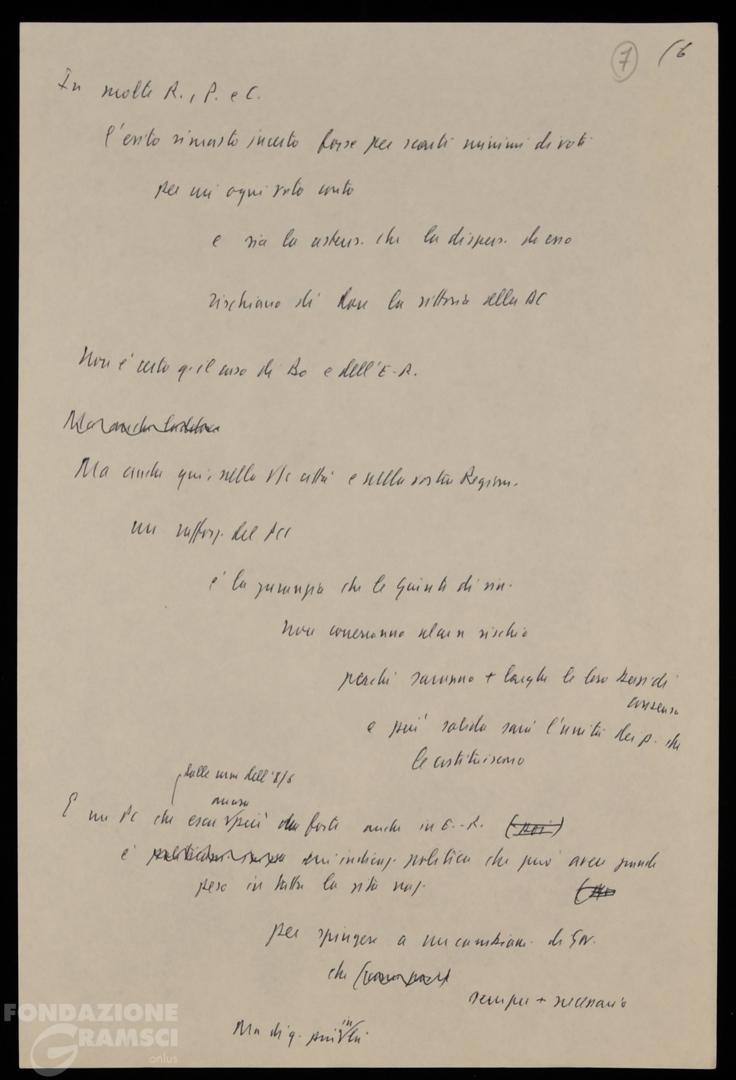 7 (6
In molte R., P. e C.
l'esito rimasto incerto forse per scarti minimi di voti
per cui ogni voto conta
e sia la astens. che la dispers. di esso
rischiano di dare la vittoria alla DC
Non è certo q. il caso di Bo e dell'E-R.
Ma anche
Ma anche qui, nella Vs città e nella vostra Regione.
un rafforz. del PCI
è la garanzia che le Giunte di sin.
non correranno alcun rischio
perché saranno + larghe le loro basi di
consenso
e più solida sarà l'unità dei p. che
le costituiscono
dalle urne dell'8/6
ancora
E un PC che esca più forte anche in E.-R. (poi)
è un'indicaz. politica che può avere grande
peso in tutta la vita naz.
per spingere a un cambiam. di Gov.
che
sempre + necessario
Ma di q. più in là
FONDAZIONE
GRAMSCI
onlus